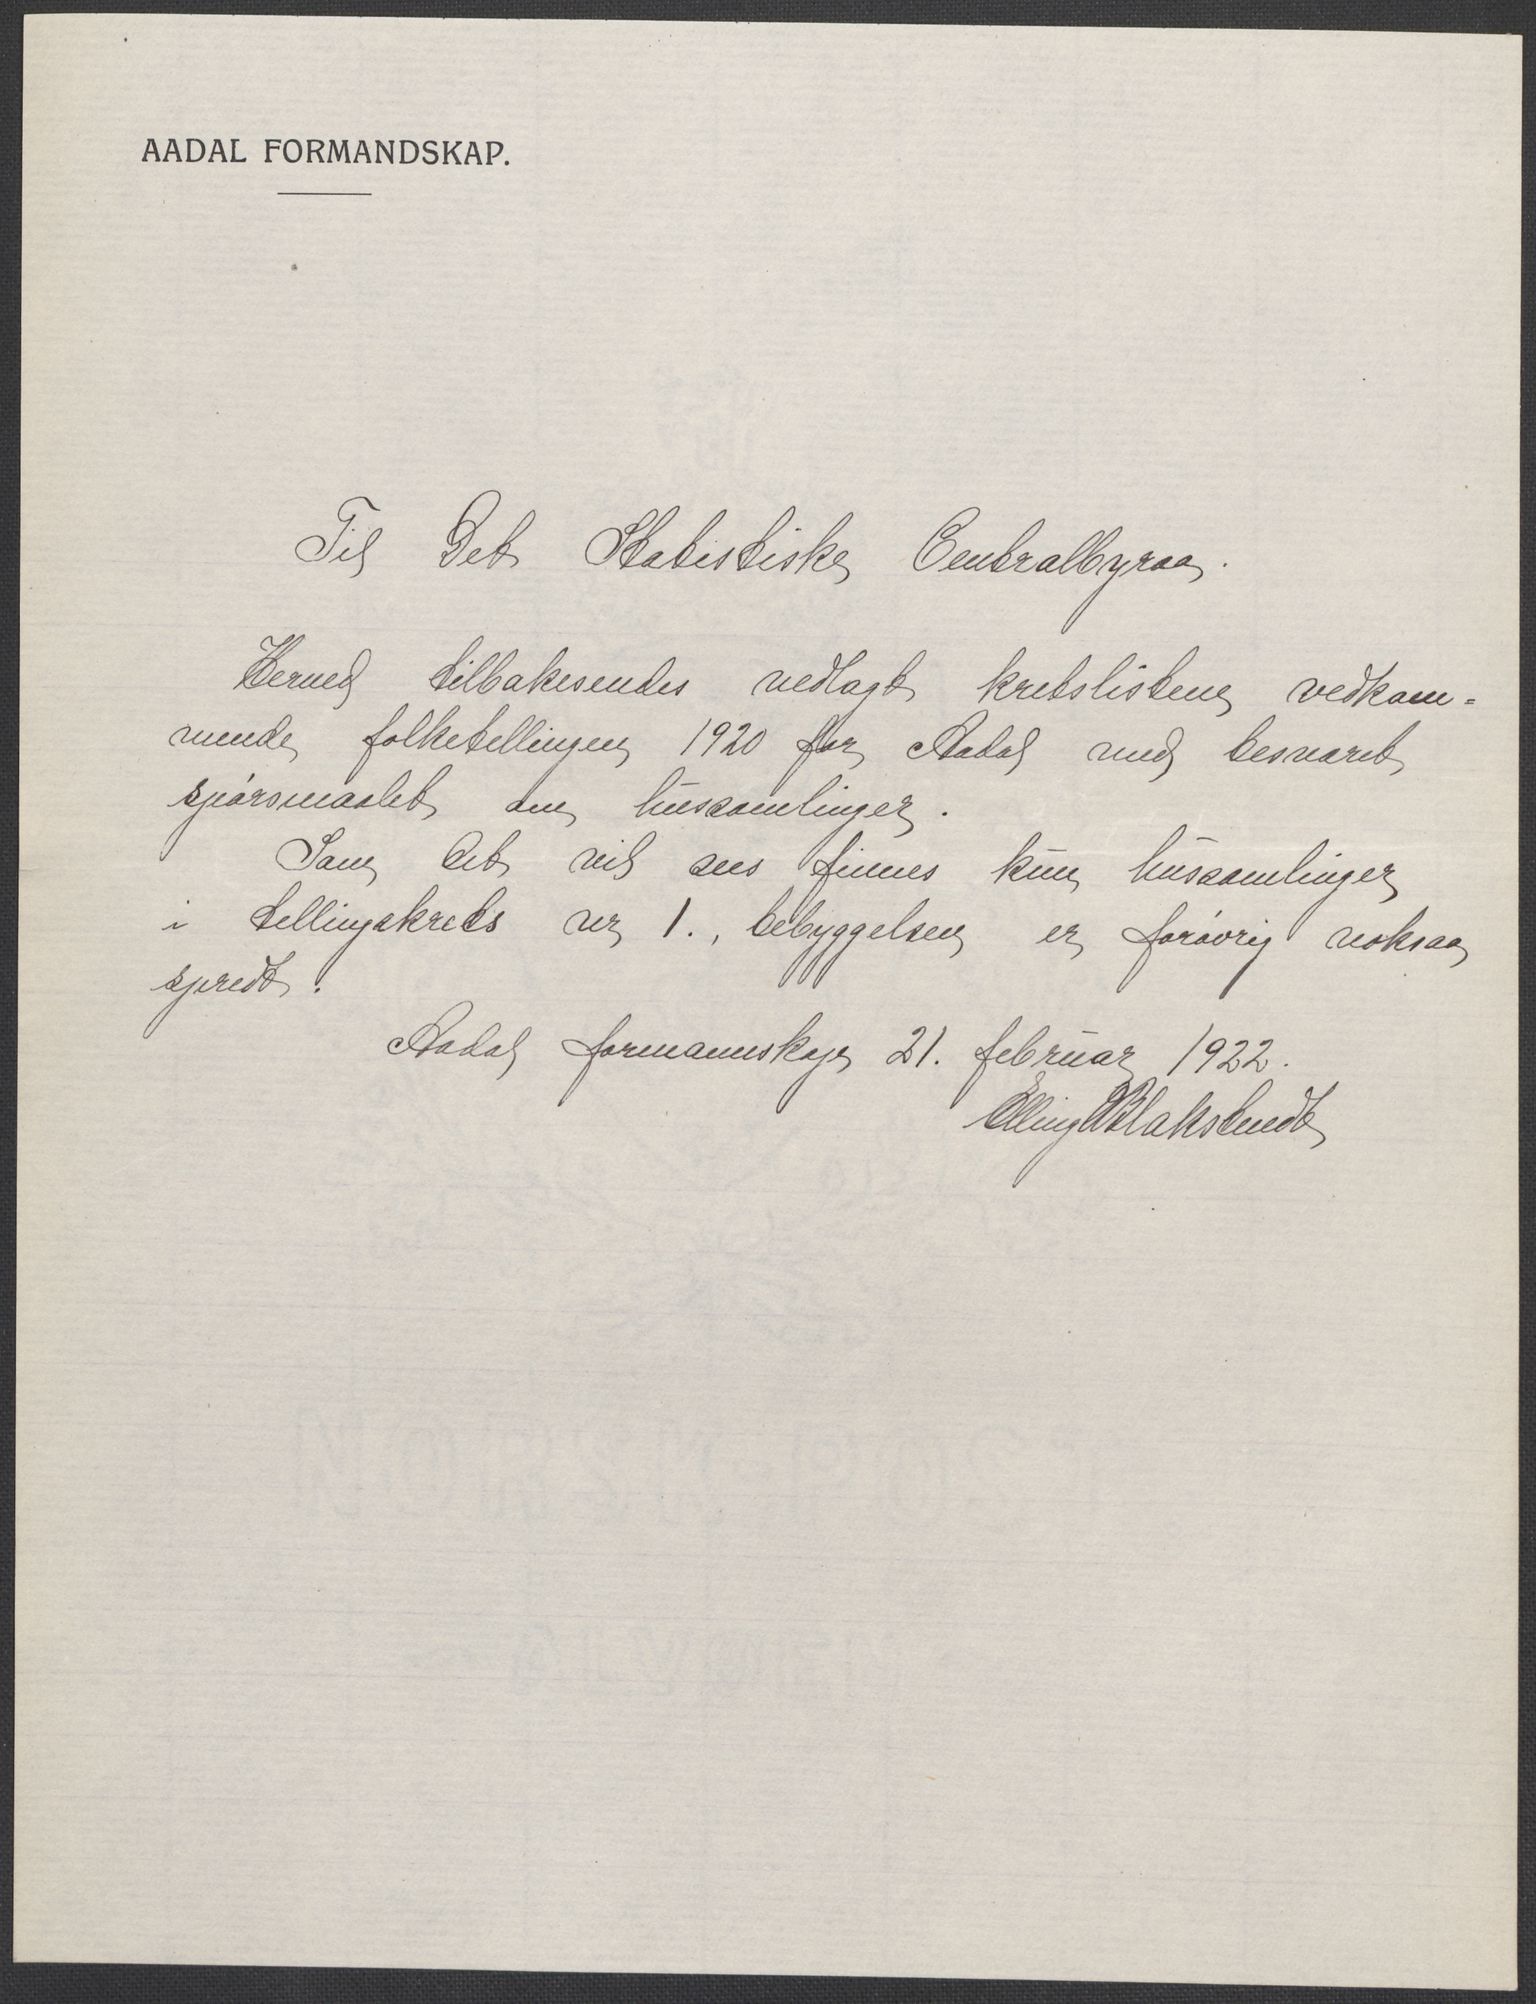 AADAL FORMANDSKAP.
Til Det Statistiske Centralbyraa.
Hermed tilbakesendes vedlagt kretslistene vedkom=
mende folketellingen 1920 for Aadal med besvaret
spörsmaalet om hussamlinger.
Som det vil sees finnes kun hussamlinger
i tellingskrets nr 1., bebyggelsen er forövrig noksaa
spredt.
Aadal formannskap 21. februar 1922.
Elling